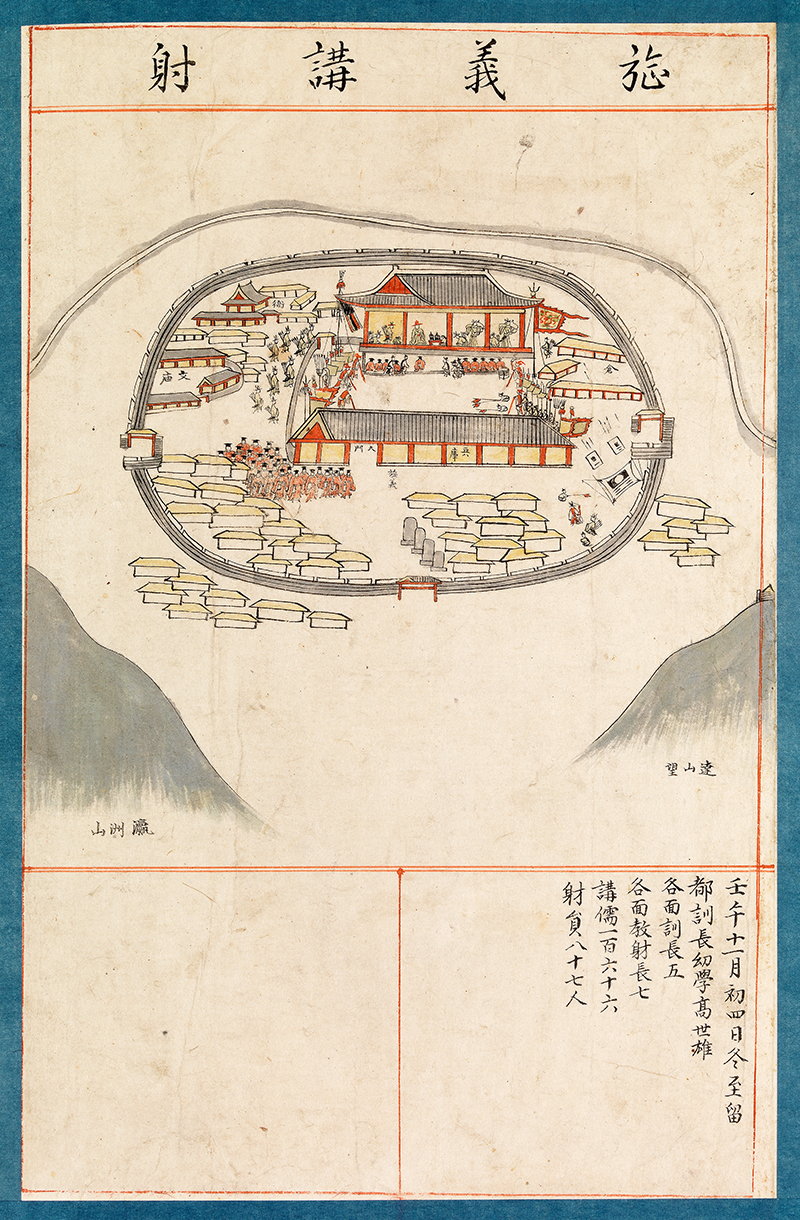 旌義講射
衙
文庙
倉
大門
兵庫
旌義
達山望
瀛洲山
壬午十一月初四日冬至留
都訓長幼學高世雄
各面訓長五
各面教射長七
講儒一百六十六
射員八十七人